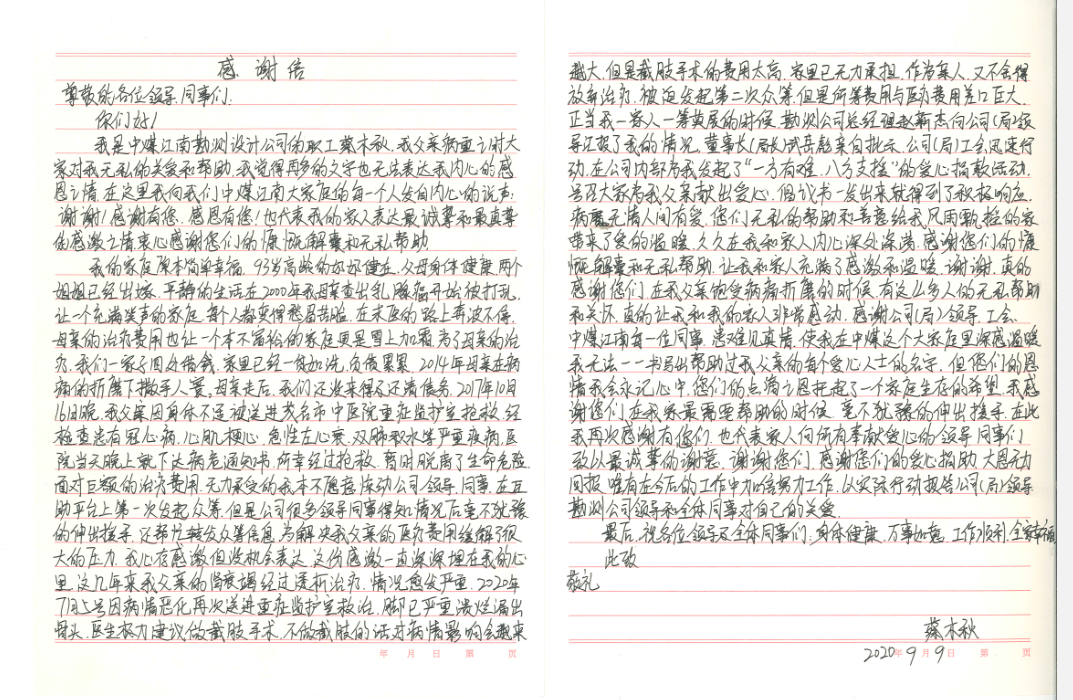 感谢信
尊敬的各位领导、同事们:
你们好!
我是中煤江南勘测设计公司的职工蔡木秋,我父亲病重之时大
家对我无私的关爱和帮助,我觉得再多的文字也无法表达我内心的感
恩之情,在这里我向我们中煤江南大家庭的每一个人发自内心的说声:
谢谢!感谢有您,感恩有您!也代表我的家人表达最诚挚和最真挚
的感激之情衷心感谢您们的慷慨解囊和无私帮助
我的家庭原本简单幸福,93岁高龄的奶奶健在,父母身体健康,两个
姐姐已经出嫁,平静的生活在2000年我母亲查出乳腺癌开始被打乱,
让一个充满笑声的家庭,每个人都变得愁眉苦脸,在求医的路上奔波不停,
母亲的治疗费用也让一个本不富裕的家庭更是雪上加霜,为了母亲的治
疗,我们一家子四处借钱,家里已经一贫如洗,负债累累,2014年母亲在病
痛的折磨下撒手人寰,母亲走后,我们还没来得及还清债务,2017年10月
16日晚,我父亲因身体不适被送进茂名市中医院重症监护室抢救,经
检查患有冠心病,心肌梗心,急性左心衰,双肺积水等严重疾病,医
院当天晚上就下达病危通知书,所幸经过抢救,暂时脱离了生命危险,
面对巨额的治疗费用,无力承受的我本不愿意惊动公司领导、同事,在互
助平台上第一次发起众筹,但是公司很多领导同事得知情况后毫不犹豫
的伸出援手,还帮忙转发众筹信息,为解决我父亲的医疗费用缓解了很
大的压力,我心存感激但没机会表达,这份感激一直深深埋在我的心
里,这几年来我父亲的肾衰竭经过透析治疗,情况愈发严重,2020年
7月5号因病情恶化再次送进重症监护室救治,脚已严重溃烂漏出
骨头,医生极力建议做截肢手术,不做截肢的话对病情影响会越来
越大,但是截肢手术的费用太高,家里已无力承担,作为亲人,又不舍得
放弃治疗,被迫发起第二次众筹,但是所筹费用与医疗费用差口巨大,
正当我一家人一筹莫展的时候,勘测公司总经理赵新杰向公司(局)领
导汇报了我的情况,董事长(局长)武岳彪亲自批示,公司(局)工会迅速行
动,在公司内部为我发起了“一方有难,八方支援”的爱心捐款活动,
号召大家为我父亲献出爱心,倡议书一发出来就得到了积极响应,
病魔无情人间有爱,您们无私的帮助和善意给我风雨飘摇的家
带来了爱的温暖,久久在我和家人内心深处深荡,感谢您们的慷
慨解囊和无私帮助,让我和家人充满了感激和温暖,谢谢,真的
感谢您们,在我父亲饱受病痛折磨的时候,有这么多人的无私帮助
和关怀,真的让我和我的家人非常感动,感谢公司(局)领导、工会、
中煤江南每一位同事,患难见真情,使我在中煤这个大家庭里深感温暖
我无法一一书写出帮助过我父亲的每个爱心人士的名字,但您们的恩
情我会永记心中,您们的点滴之恩托起了一个家庭生存的希望,我感
谢您们,在我家最需要帮助的时候,毫不犹豫的伸出援手,在此
我再次感谢有您们,也代表家人向所有奉献爱心的领导同事们
致以最诚挚的谢意,谢谢您们,感谢您们的爱心捐助,大恩无力
回报,唯有在今后的工作中加倍努力工作,以实际行动报答公司(局)领导
勘测公司领导和全体同事对自己的关爱.
最后,祝各位领导及全体同事们:身体健康,万事如意,工作顺利,全家幸福
此致
敬礼
蔡木秋
2020年9月9日 第 页
年 月 日 第 页